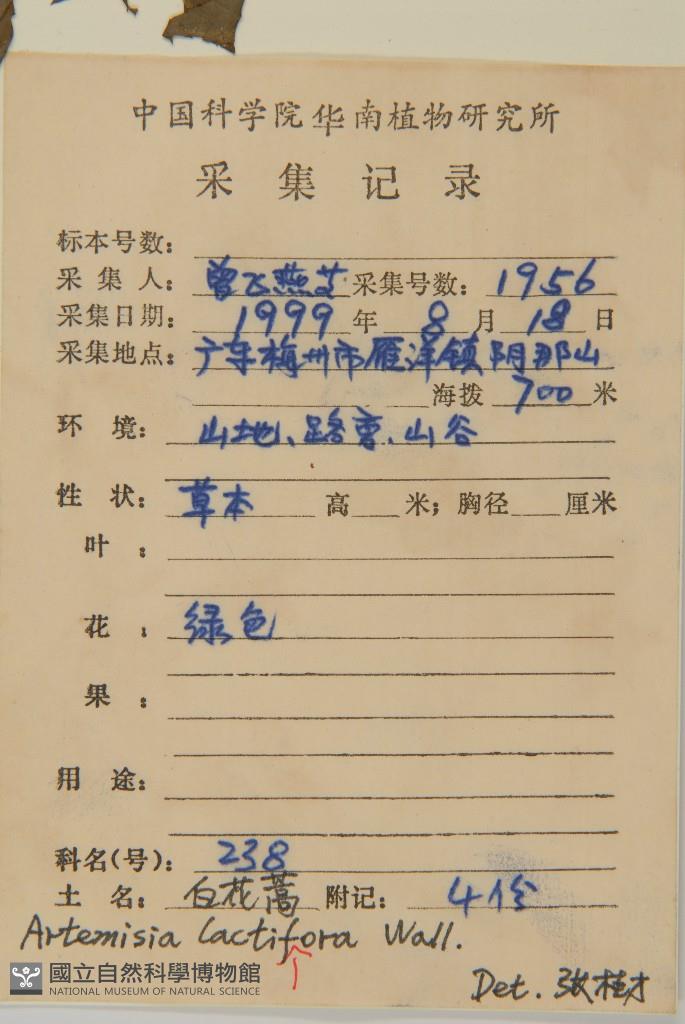 中国科学院华南植物研究所
采集记录
标本号数：
采集人：曾飞燕等 采集号数：1956
采集日期：1999年8月18日
采集地点：广东梅州市雁洋镇阴那山
海拨 700 米
环境：山地、路旁、山谷
性状：草本 高 米；胸径 厘米
叶：
花：绿色
果：
用途：
科名(号)：238
土名：白花蒿 附记：4份
Artemisia lactifora Wall.
Det. 张桂才
國立自然科學博物館
NATIONAL MUSEUM OF NATURAL SCIENCE